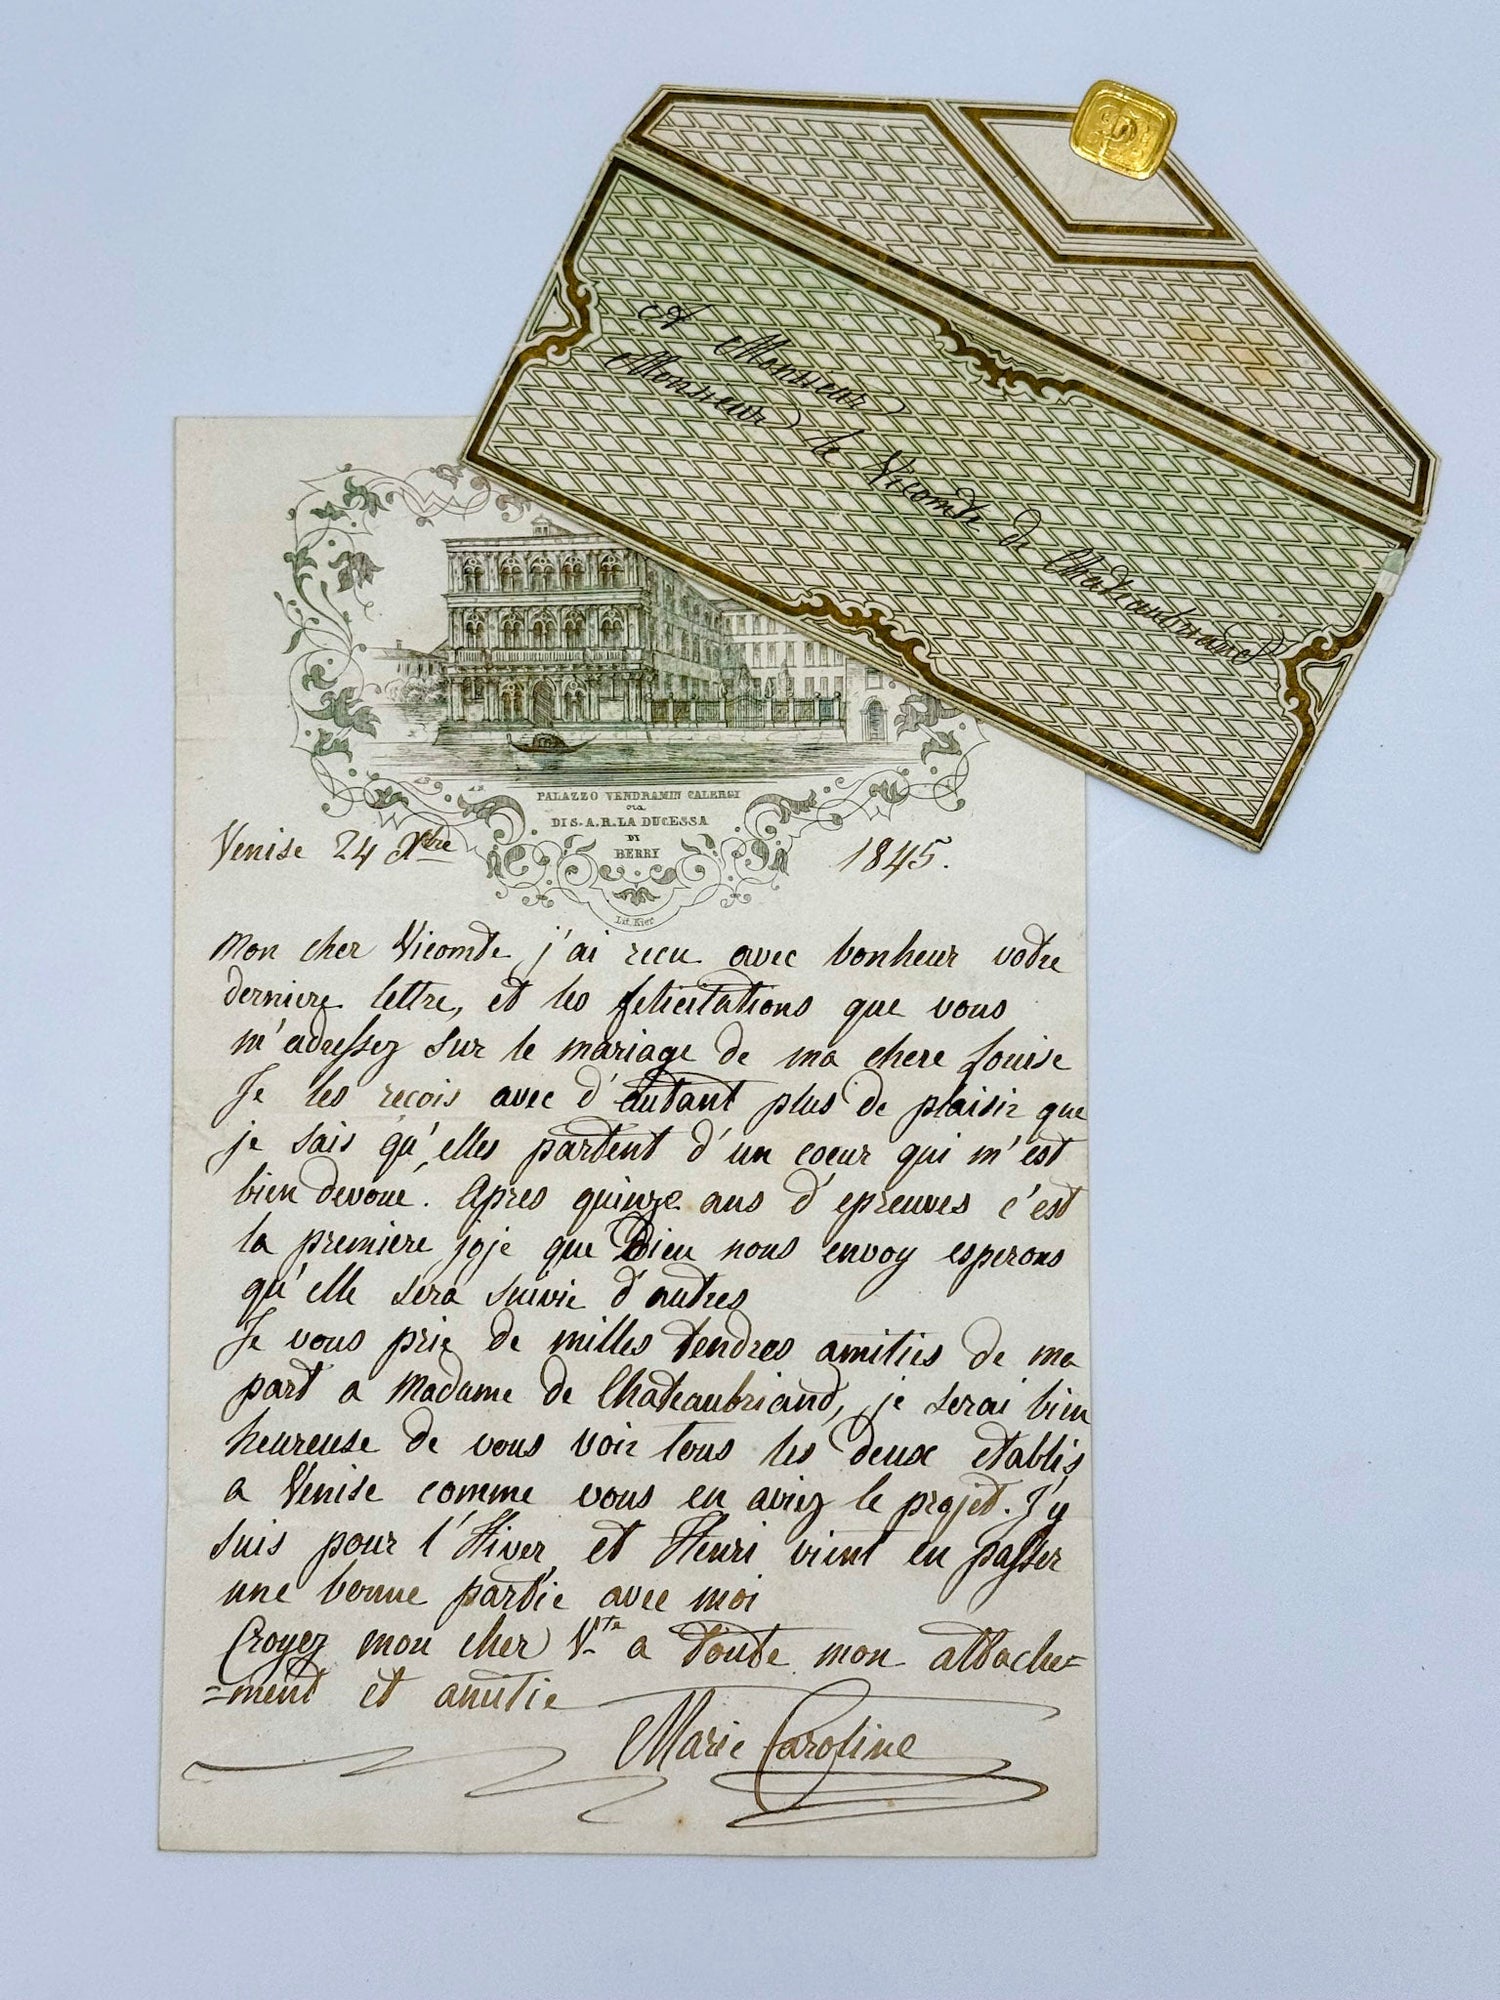 A Monsieur
Monsieur le Vicomte de Chateaubriand
PALAZZO VENDRAMIN CALERGI
ora
DI S.A.R. LA DUCESSA
DI
BERRI
Lit. Kier
Venise 24 Xbre 1845.
Mon cher Vicomte j'ai recu avec bonheur votre
derniere lettre, et les felicitations que vous
m'adressez sur le mariage de ma chere Louise
Je les recois avec d'autant plus de plaisir que
je sais qu'elles partent d'un coeur qui m'est
bien devoué. Apres quinze ans d'epreuves c'est
la premiere joje que Dieu nous envoy esperons
qu'elle sera suivie d'autres
Je vous prie de milles tendres amities de ma
part a Madame de Chateaubriand, je serai bien
heureuse de vous voir tous les deux etablis
a Venise comme vous en aviez le projet. J'y
suis pour l'Hiver et Henri vient en passer
une bonne partie avec moi
Croyez mon cher Vte a toute mon attache=
=ment et amitie
Marie Caroline